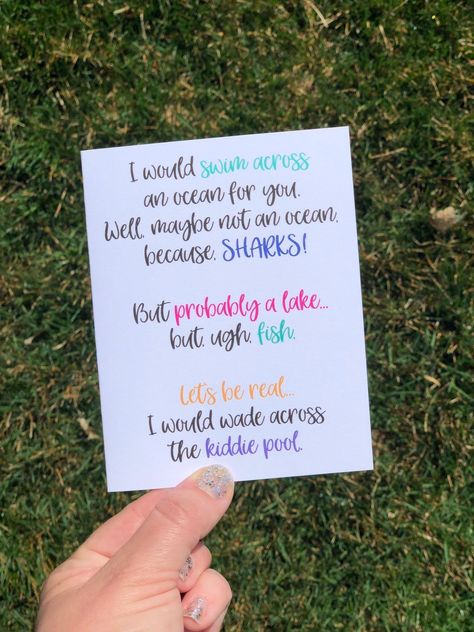 I would swim across
an ocean for you.
Well, maybe not an ocean,
because, SHARKS!
But probably a lake...
but, ugh, fish.
Let's be real...
I would wade across
the kiddie pool.